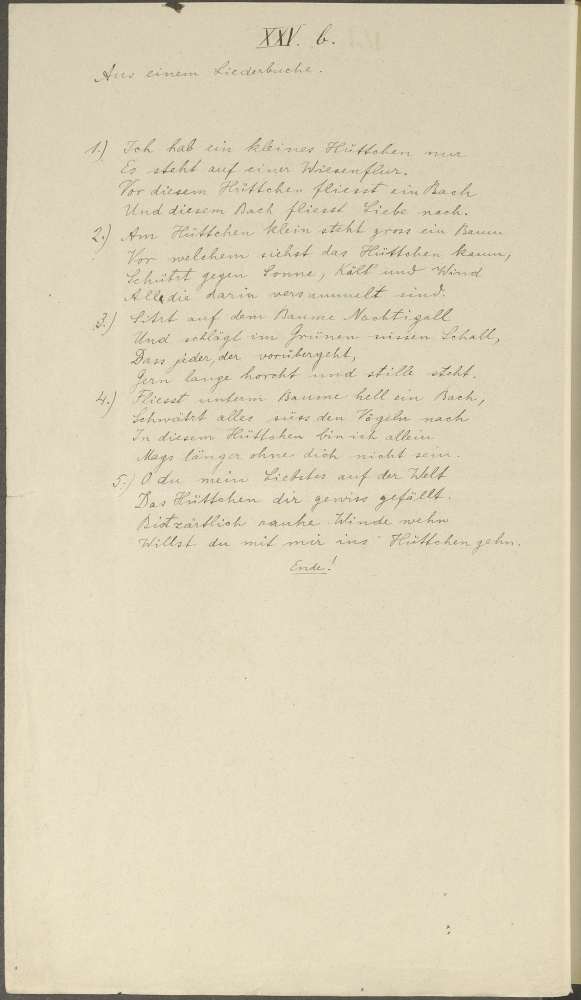 XXV. b.
Aus einem Liederbuche.
1.) Ich hab ein kleines Hüttchen nur
Es steht auf einer Wiesenflur.
Vor diesem Hüttchen fliesst ein Bach
Und diesem Bach fliesst Liebe nach.
2.) Am Hüttchen klein steht gross ein Baum
Vor welchem siehst das Hüttchen kaum,
Schützt gegen Sonne, Kält und Wind
Alle die darin versammelt sind.
3.) Sitzt auf dem Baume Nachtigall
Und schlägt im Grünen süssen Schall,
Dass jeder, der vorübergeht,
Gern lange horcht und stille steht.
4.) Fliesst unterm Baume hell ein Bach,
Schwätzt alles süss den Vögeln nach
In diesem Hüttchen bin ich allein
Mags länger ohne dich nicht sein.
5.) O du mein Liebstes auf der Welt
Das Hüttchen dir gewiss gefällt.
Bist zärtlich rauhe Winde wehn
Willst du mit mir ins Hüttchen gehn.
Ende!